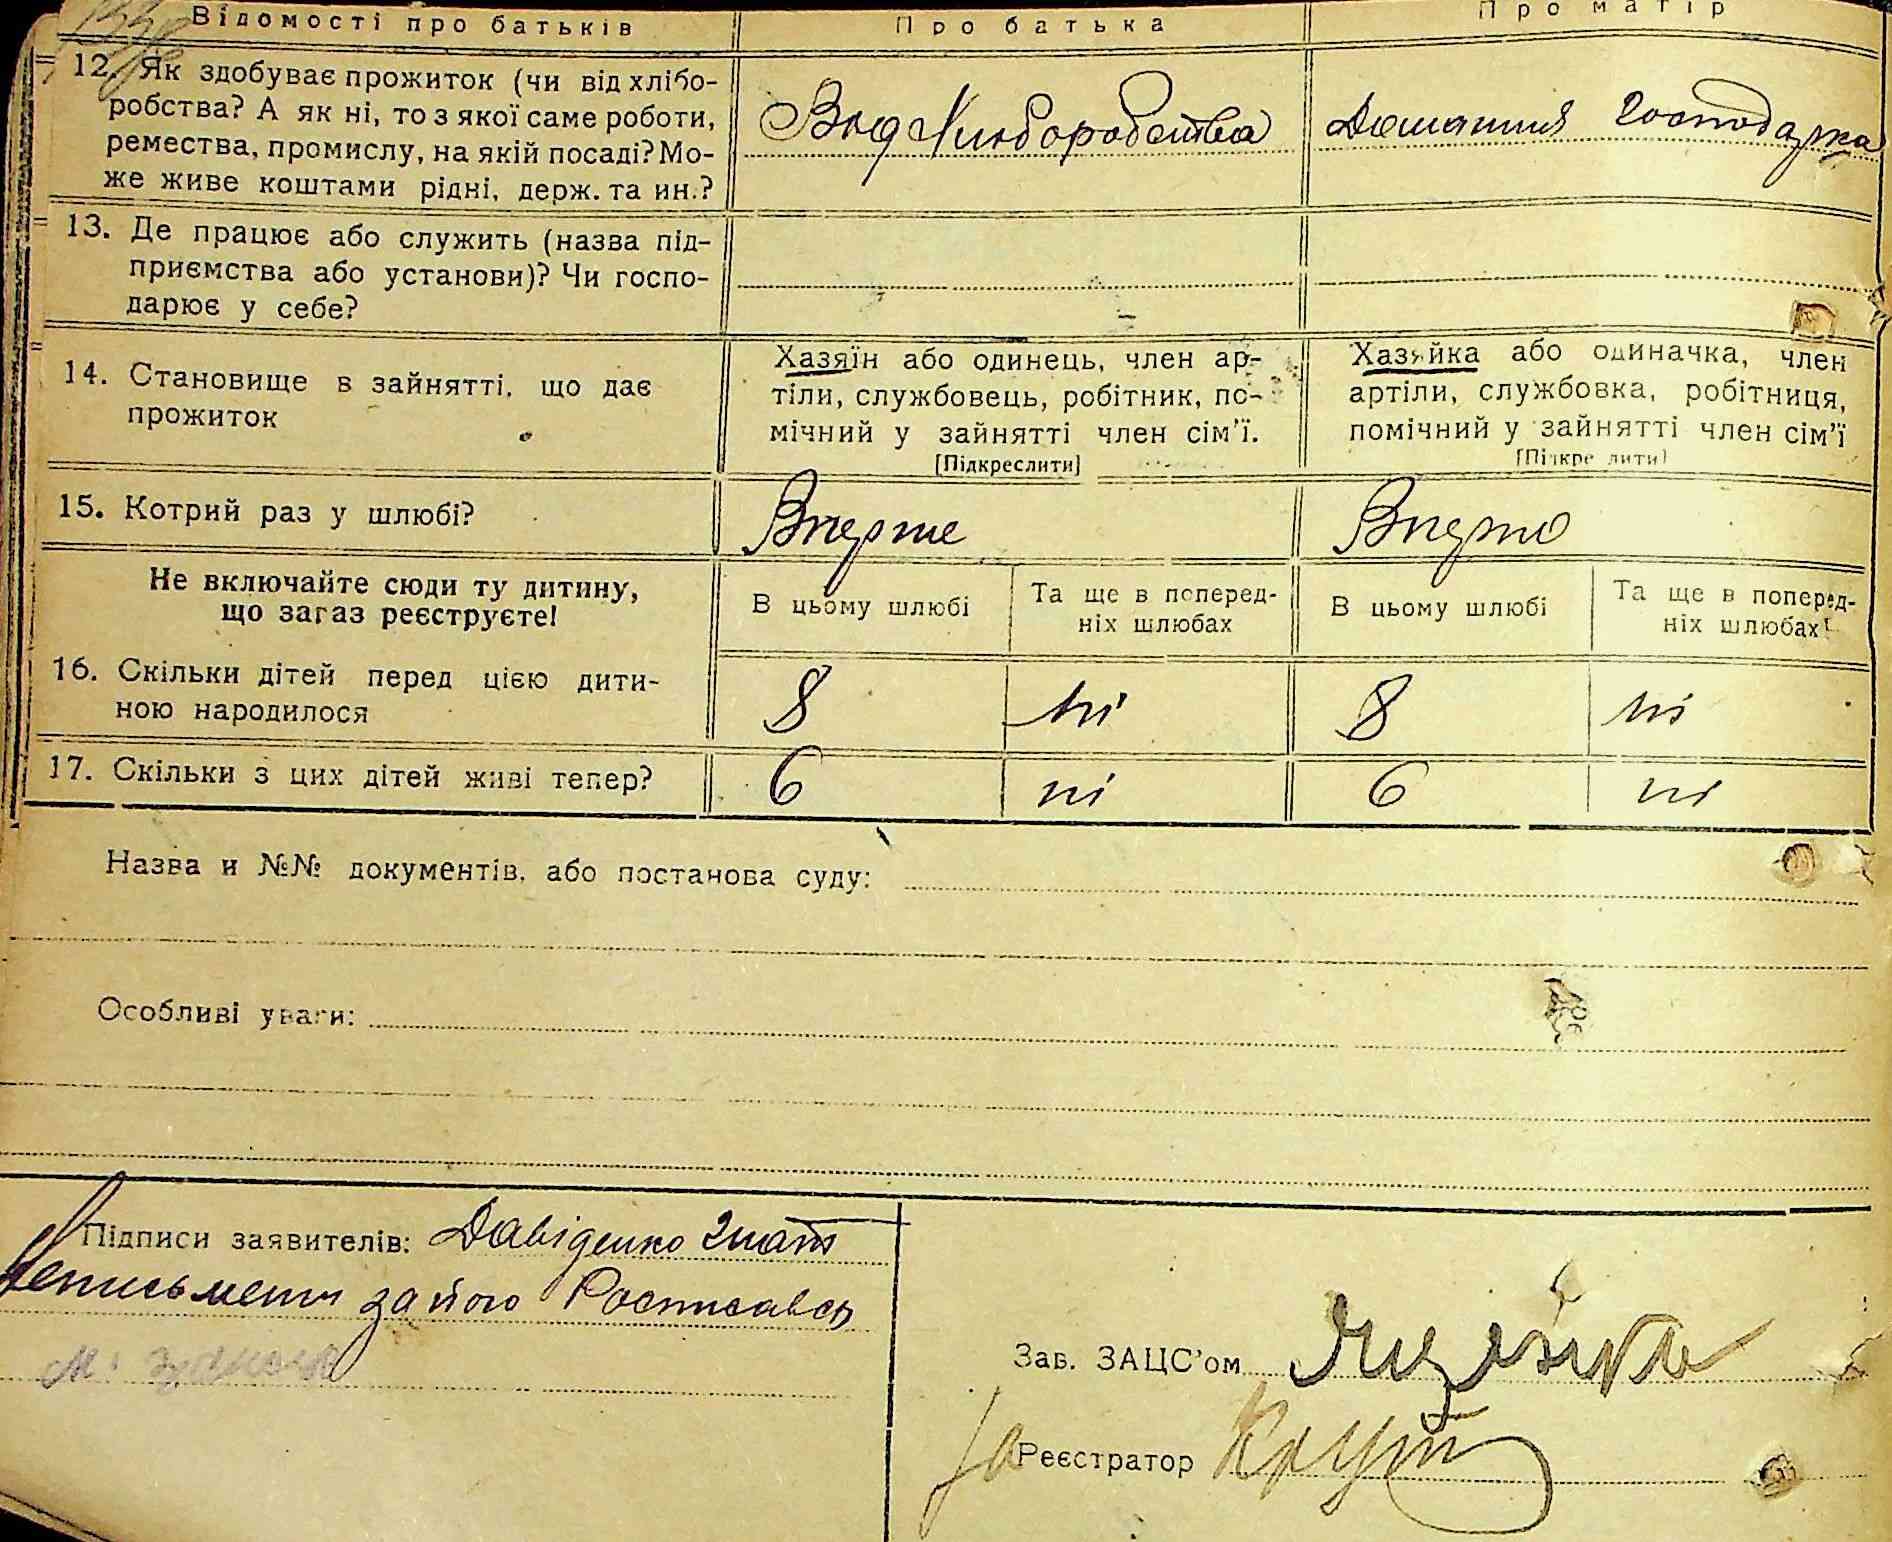 Відомості про батьків
Про батька
Про матір
12. Як здобуває прожиток (чи від хлібо-
робства? А як ні, то з якої саме роботи,
ремества, промислу, на якій посаді? Мо-
же живе коштами рідні, держ. та ин.?
Выд Хлиборобства
Домашня Господарка
13. Де працює або служить (назва під-
приємства або установи)? Чи госпо-
дарює у себе?
14. Становище в зайнятті, що дає
прожиток
Хазяїн або одинець, член ар-
тіли, службовець, робітник, по-
мічний у зайнятті член сім'ї.
[Підкреслити]
Хазяйка або одиначка, член
артіли, службовка, робітниця,
помічний у зайнятті член сім'ї
[Підкреслити]
15. Котрий раз у шлюбі?
Вперше
Вперше
Не включайте сюди ту дитину,
що загаз реєструєте!
В цьому шлюбі
Та ще в поперед-
ніх шлюбах
В цьому шлюбі
Та ще в поперед-
ніх шлюбах
16. Скільки дітей перед цією дити-
ною народилося
8
ні
8
ні
17. Скільки з цих дітей живі тепер?
6
ні
6
ні
Назва и №№ документів, або постанова суду:
Особливі уваги:
Підписи заявителів: Давіденко Гнат
Неписьмени за його Росписався
Зав. ЗАЦС'ом
за Реєстратор